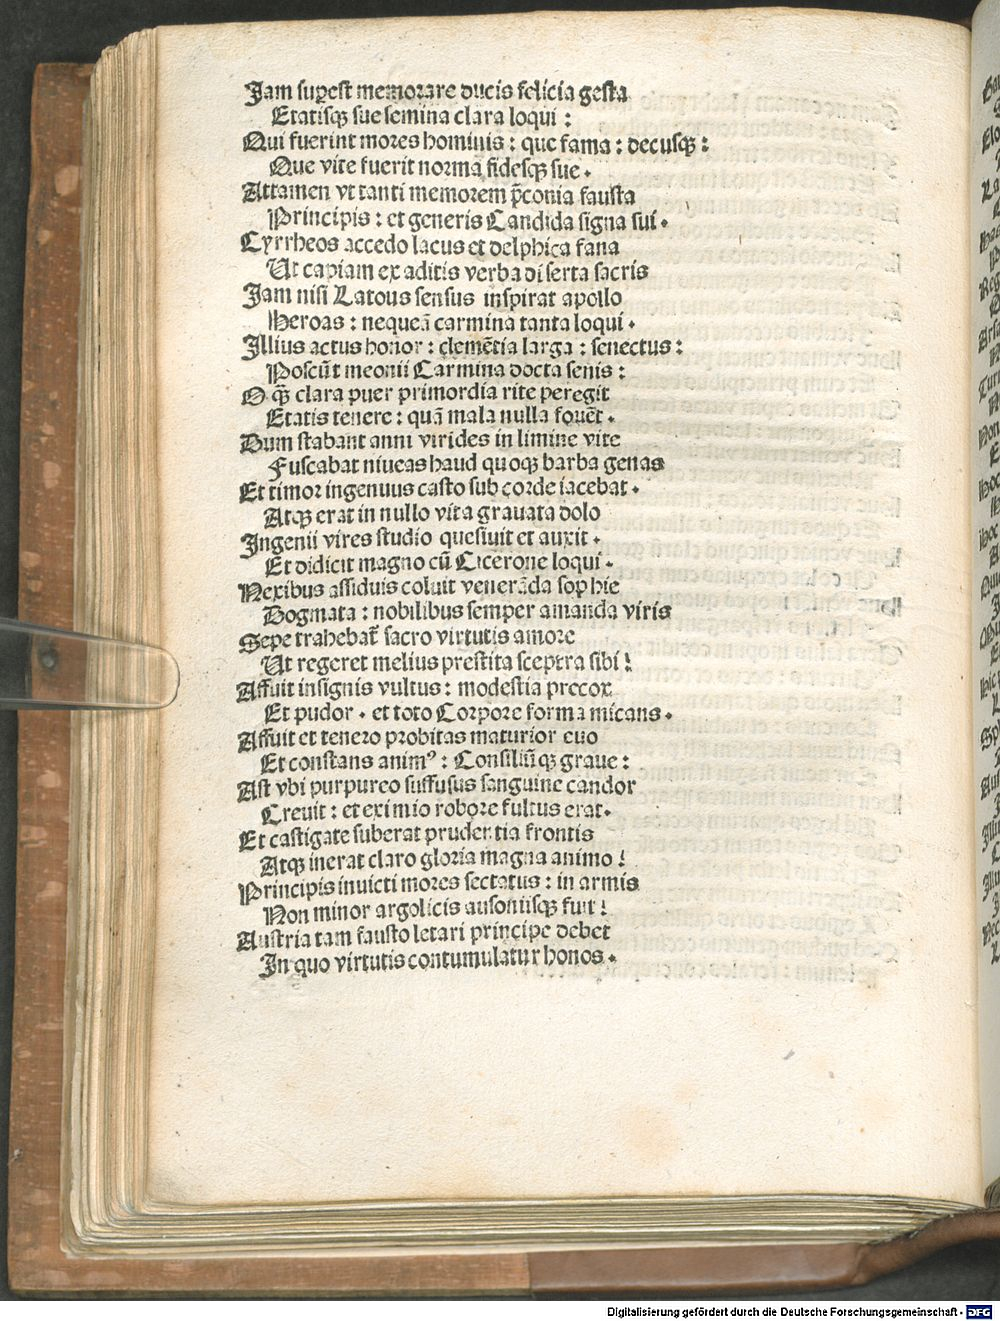 Jam supest memorare ducis felicia gesta
Etatisqꝫ sue semina clara loqui :
Qui fuerint mores hominis : que fama : decusqꝫ :
Que vite fuerit norma fidesqꝫ sue .
Attamen vt tanti memorem p̄conia fausta
Principis : et generis Candida signa sui .
Cyrrheos accedo lacus et delphica fana
Ut capiam ex aditis verba diserta sacris
Jam nisi Latous sensus inspirat apollo
Heroas : nequeā carmina tanta loqui .
Illius actus honor : clemētia larga : senectus :
Poscūt meonii Carmina docta senis :
O qꝫ clara puer primordia rite peregit
Etatis tenere : quā mala nulla fouēt .
Dum stabant anni virides in limine vite
Fuscabat niueas haud quoqꝫ barba genas
Et timor ingenuus casto sub corde iacebat .
Atqꝫ erat in nullo vita grauata dolo
Ingenii vires studio quesiuit et auxit .
Et didicit magno cū Cicerone loqui .
Nexibus assiduis coluit venerāda sophie
Dogmata : nobilibus semper amanda viris
Sepe trahebat᷑ sacro virtutis amore
Ut regeret melius prestita sceptra sibi !
Affuit insignis vultus : modestia precox
Et pudor . et toto Corpore forma micans .
Affuit et tenero probitas maturior euo
Et constans animꝰ : Consiliūqꝫ graue :
Ast vbi purpureo suffusus sanguine candor
Creuit : et eximio robore fultus erat .
Et castigate suberat prudentia frontis
Atqꝫ inerat claro gloria magna animo !
Principis inuicti mores sectatus : in armis
Non minor argolicis ausoniisqꝫ fuit !
Austria tam fausto letari principe debet
In quo virtutis contumulatur honos .
Digitalisierung gefördert durch die Deutsche Forschungsgemeinschaft - DFG